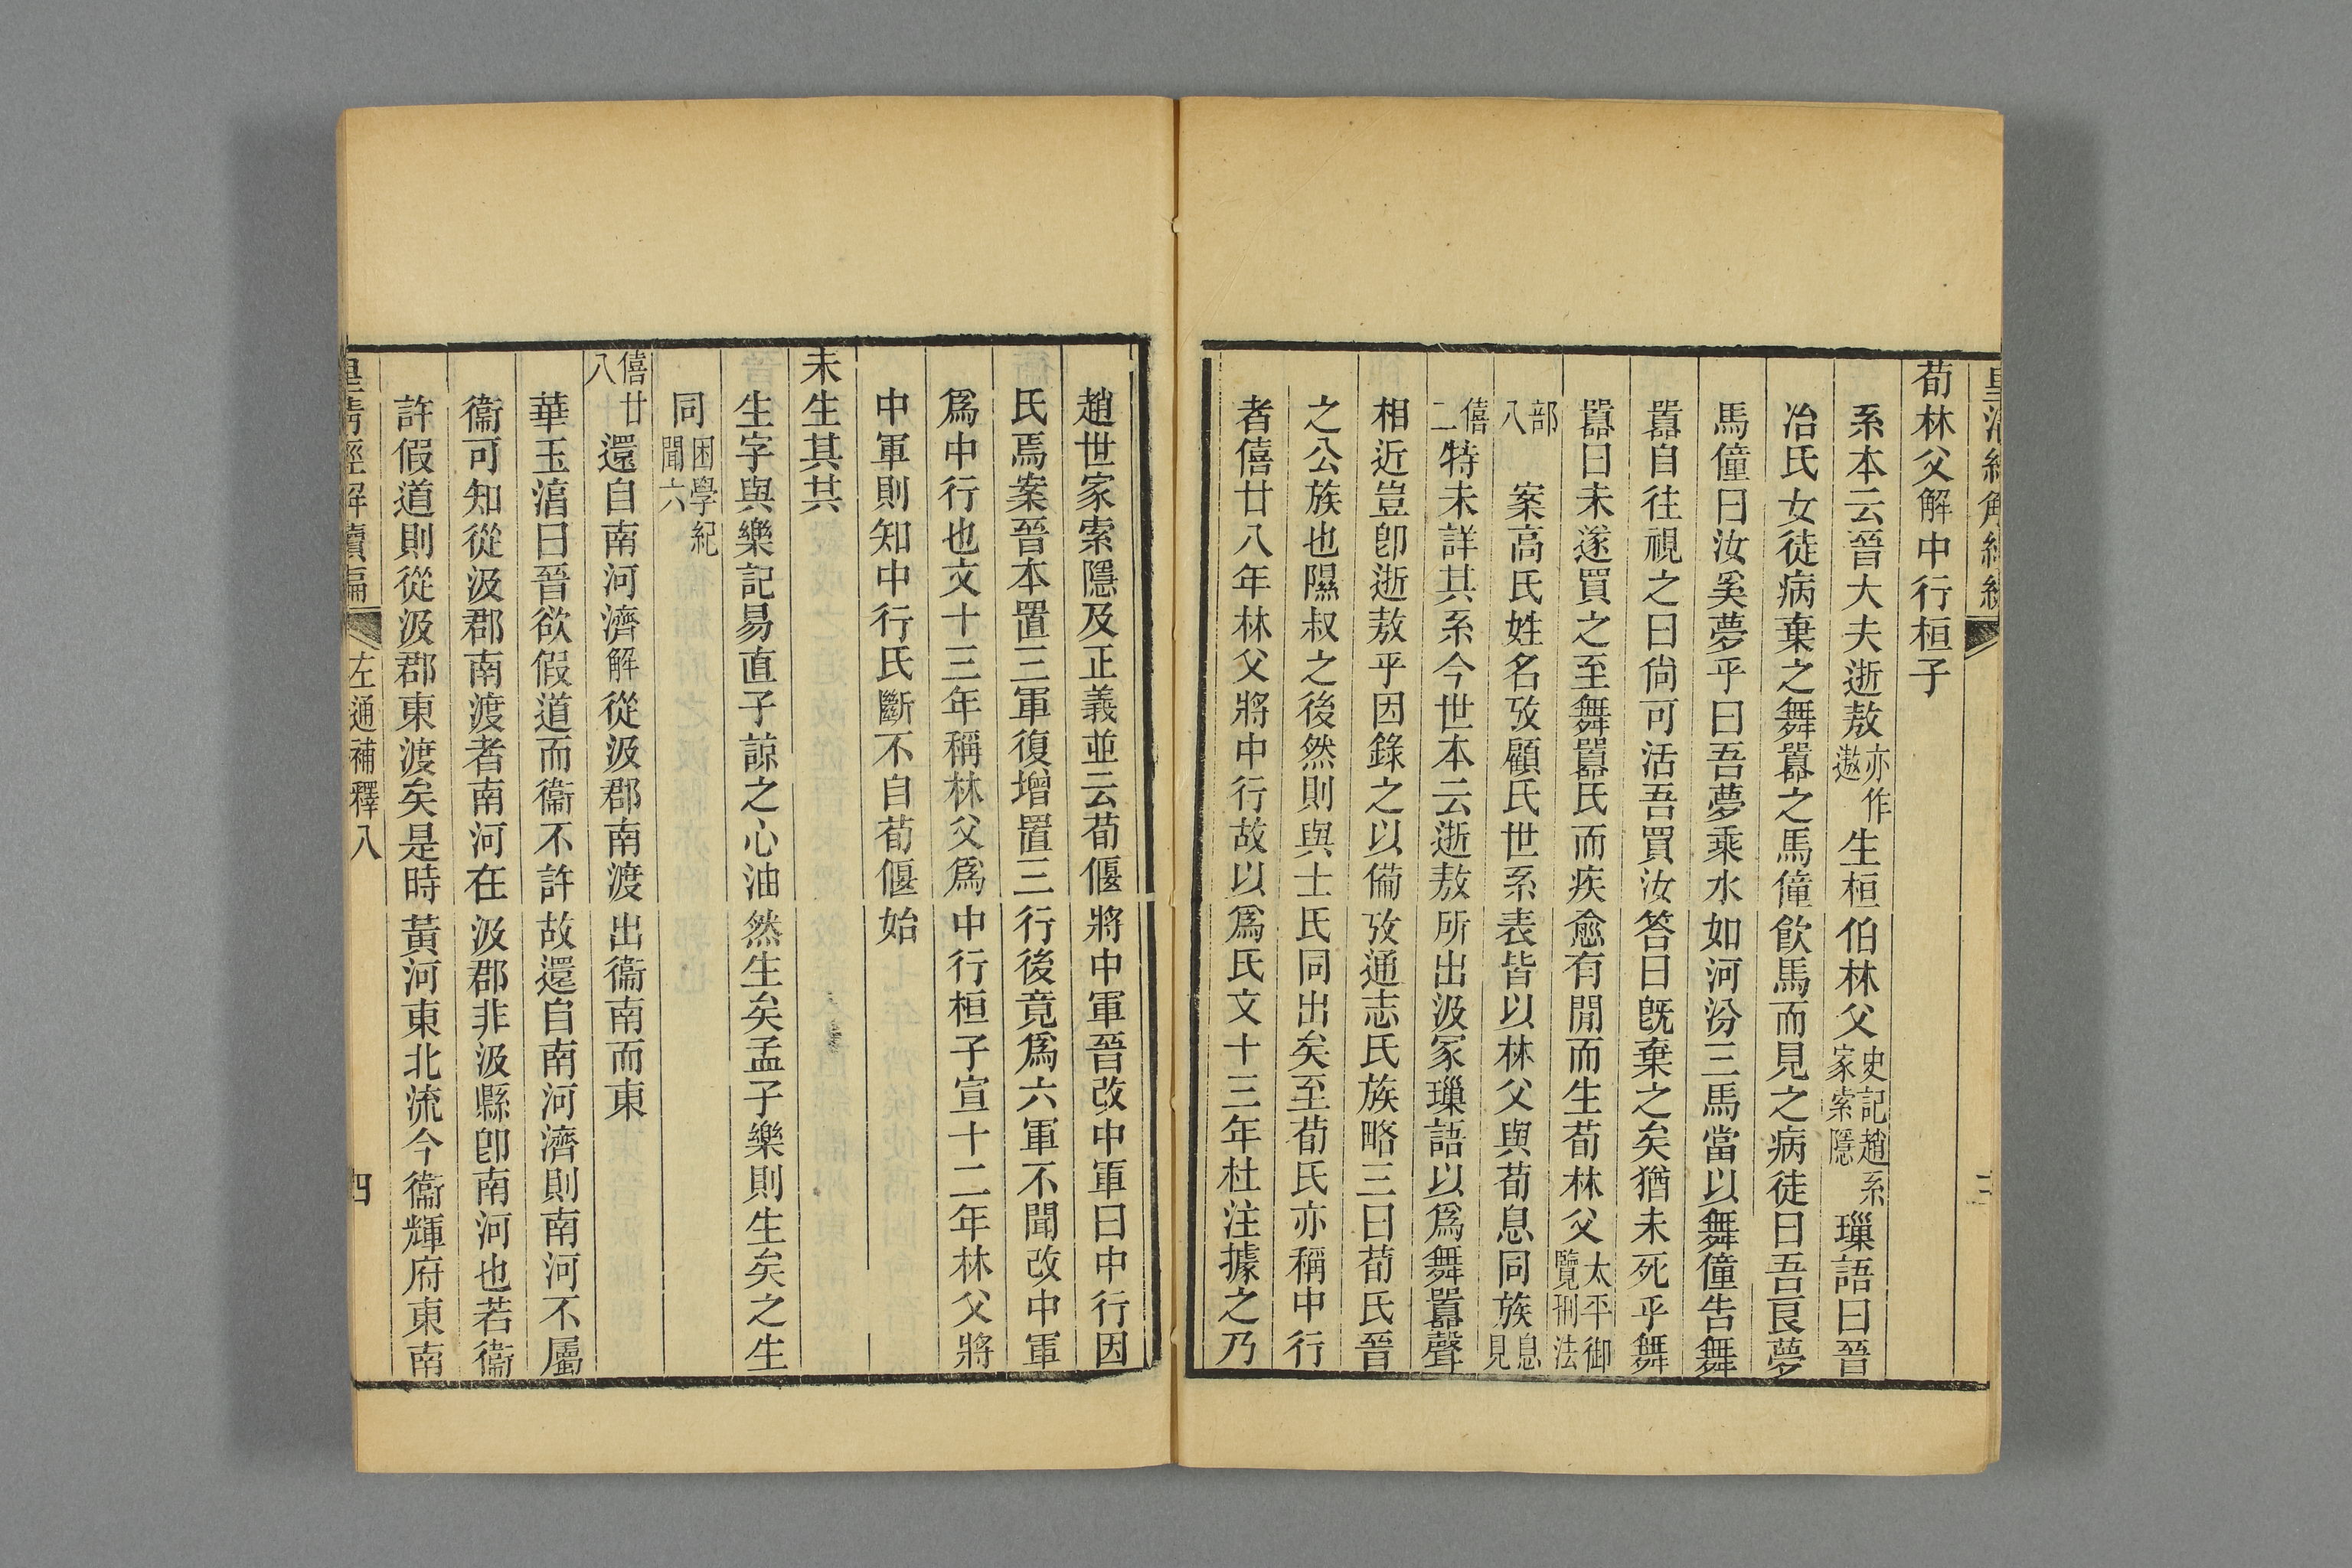 荀林父解中行桓子
系本云晉大夫逝敖亦作遨生桓伯林父史記趙系家索隱璅語曰晉
冶氏女徒病棄之舞嚚之馬僮飲馬而見之病徒曰吾良夢
馬僮曰汝奚夢乎曰吾夢乘水如河汾三馬當以舞僮告舞
嚚自往視之曰尙可活吾買汝答曰旣棄之矣猶未死乎舞
嚚曰未遂買之至舞嚚氏而疾愈有閒而生荀林父太平御覽刑法
部八 案高氏姓名攷顧氏世系表皆以林父與荀息同族息見
僖二特未詳其系今世本云逝敖所出汲冢璅語以爲舞嚚聲
相近豈卽逝敖乎因錄之以備攷通志氏族略三曰荀氏晉
之公族也隰叔之後然則與士氏同出矣至荀氏亦稱中行
者僖廿八年林父將中行故以爲氏文十三年杜注據之乃
趙世家索隱及正義並云荀偃將中軍晉改中軍曰中行因
氏焉案晉本置三軍復增置三行後竟爲六軍不聞改中軍
爲中行也文十三年稱林父爲中行桓子宣十二年林父將
中軍則知中行氏斷不自荀偃始
未生其共
生字與樂記易直子諒之心油然生矣孟子樂則生矣之生
同困學紀聞六
僖廿八還自南河濟解從汲郡南渡出衞南而東
華玉淳曰晉欲假道而衞不許故還自南河濟則南河不屬
衞可知從汲郡南渡者南河在汲郡非汲縣卽南河也若衞
許假道則從汲郡東渡矣是時黃河東北流今衞輝府東南
皇清經解續編 左通補釋八 四